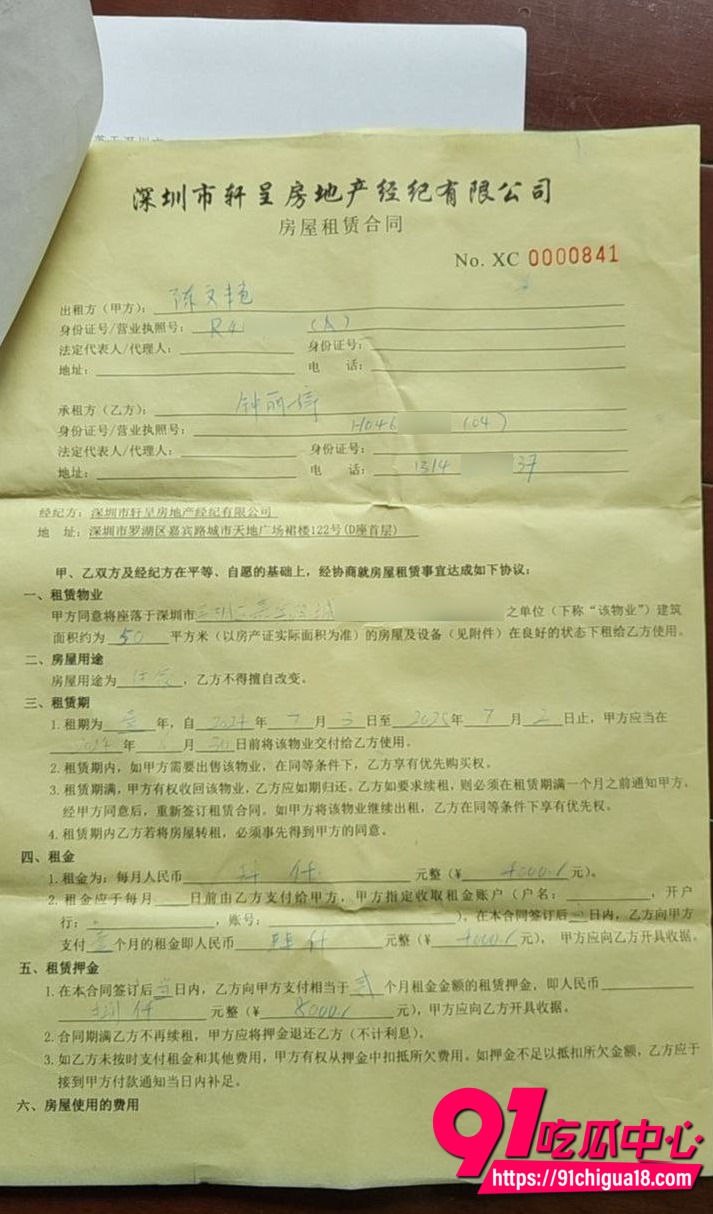 深圳市轩呈房地产经纪有限公司
房屋租赁合同
No. XC 0000841
出租方（甲方）：陈文艳
身份证号/营业执照号：R4 （A）
法定代表人/代理人： 身份证号：
地址： 电 话：
承租方（乙方）：钟丽
身份证号/营业执照号：H046 （04）
法定代表人/代理人： 身份证号：
地址： 电 话：1314 37
经纪方：深圳市轩呈房地产经纪有限公司
地 址：深圳市罗湖区嘉宾路城市天地广场裙楼122号(D座首层)
甲、乙双方及经纪方在平等、自愿的基础上，经协商就房屋租赁事宜达成如下协议：
一、租赁物业
甲方同意将座落于深圳市 之单位（下称“该物业”）建筑
面积约为 50 平方米（以房产证实际面积为准）的房屋及设备（见附件）在良好的状态下租给乙方使用。
二、房屋用途
房屋用途为 ，乙方不得擅自改变。
三、租赁期
1.租期为 壹 年，自 2024 年 7 月 3 日至 2025 年 7 月 2 日止，甲方应当在
2024 年 月 30 日前将该物业交付给乙方使用。
2.租赁期内，如甲方需要出售该物业，在同等条件下，乙方享有优先购买权。
3.租赁期满，甲方有权收回该物业，乙方应如期归还。乙方如要求续租，则必须在租赁期满一个月之前通知甲方，
经甲方同意后，重新签订租赁合同。如甲方将该物业继续出租，乙方在同等条件下享有优先权。
4.租赁期内乙方若将房屋转租，必须事先得到甲方的同意。
四、租金
1.租金为：每月人民币 肆 仟 元整（¥ 4000.1 元）。
2.租金应于每月 日前由乙方支付给甲方，甲方指定收取租金账户（户名： ，开户
行： ，账号： ）。在本合同签订后 日内，乙方向甲方
支付 壹 个月的租金即人民币 肆仟 元整（¥ 4000.1 元），甲方应向乙方开具收据。
五、租赁押金
1.在本合同签订后 当 日内，乙方向甲方支付相当于 贰 个月租金金额的租赁押金，即人民币
捌仟 元整（¥ 8000.1 元），甲方应向乙方开具收据。
2.合同期满乙方不再续租，甲方应将押金退还乙方（不计利息）。
3.如乙方未按时支付租金和其他费用，甲方有权从押金中扣抵所欠费用。如押金不足以抵扣所欠金额，乙方应于
接到甲方付款通知当日内补足。
六、房屋使用的费用
91吃瓜中心
https://91chigua18.com